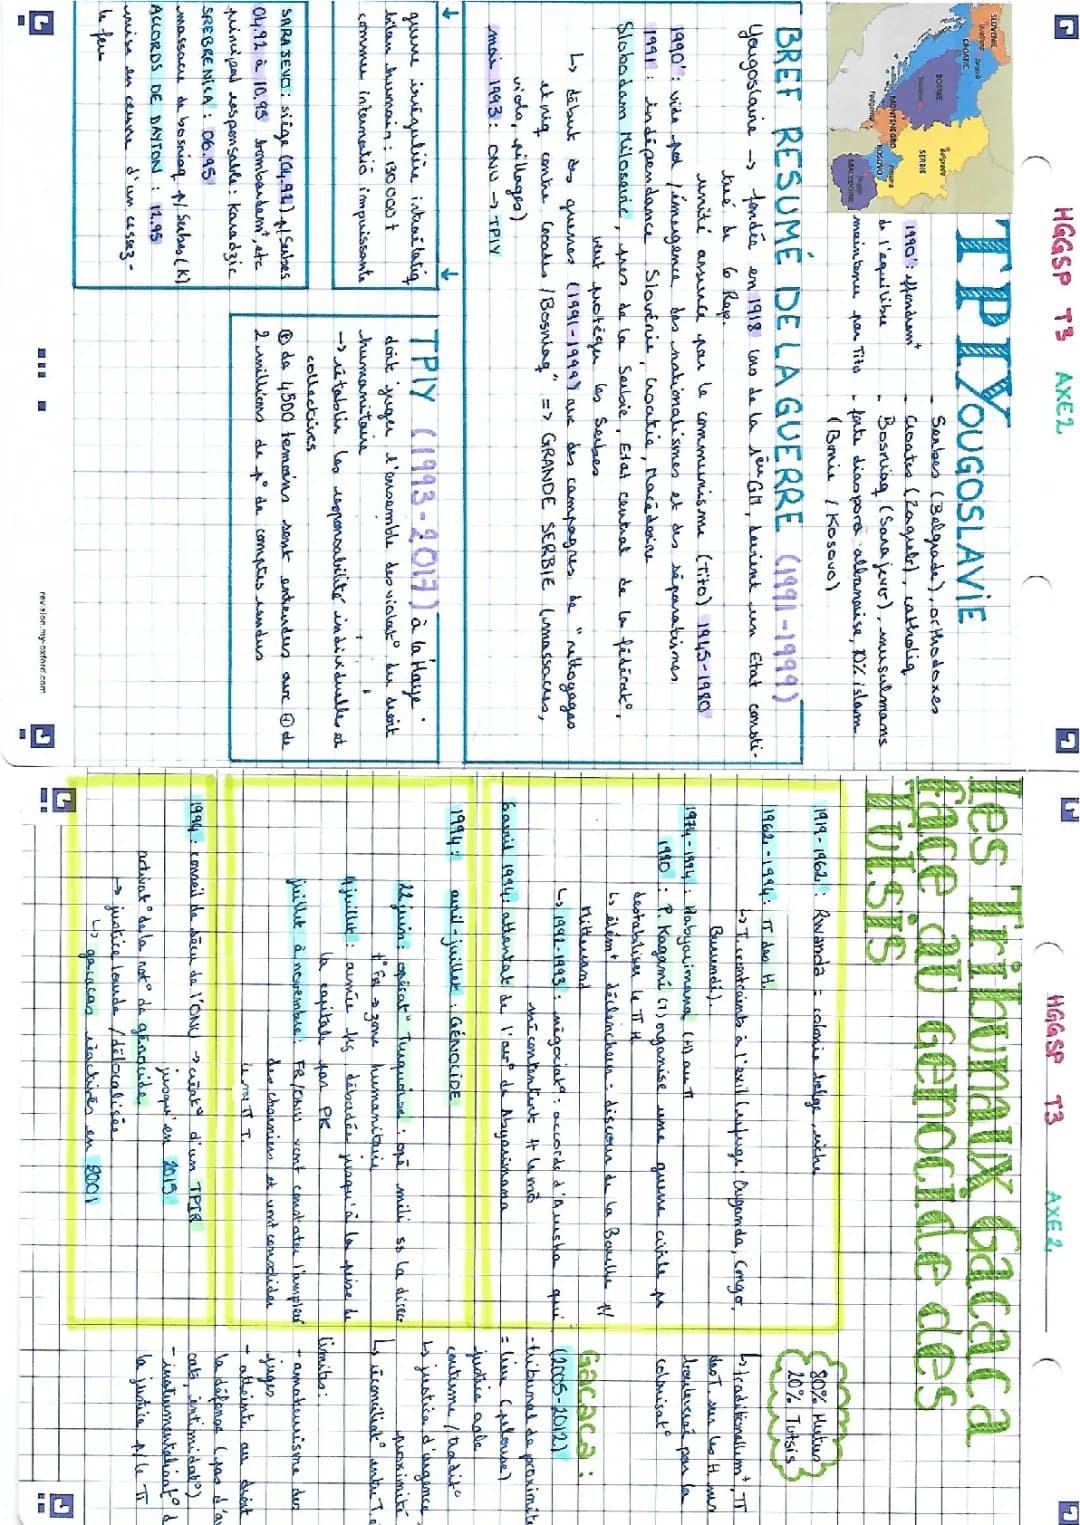 HGGSP T3 AXE 2
TPIYOUGOSLAVIE
SLOVÉNIE
CROATIE
BOSNIE
SERBIE
Belgrade
MONTÉNÉGRO
KOSOVO
MACÉDOINE
1990': effondremt
de l'équilibre
maintenu par Tito
- Serbes (Belgrade), orthodoxes
- Croates (Zagreb), catholiq
- Bosniaq (Sarajevo), musulmans
- forte diaspora albanaise, 70% islam
(Bosnie / Kosovo)
BREF RÉSUMÉ DE LA GUERRE (1991-1999)
Yougoslavie → fondée en 1918 lors de la 1ère GM, devient un Etat consti-
tué de 6 Rép.
unité assurée par le communisme (Tito) 1945-1980
1990': vide pol / émergence des nationalismes et des séparatismes
1991: indépendance Slovénie, Croatie, Macédoine
Slobodam Milosevic, pres de la Serbie, Etat central de la fédérat°,
veut protéger les Serbes
↳ début des guerres (1991-1999) avec des campagnes de "nettoyages
ethniq contre Croates / Bosniaq" => GRANDE SERBIE (massacres,
viols, pillages)
mai 1993: ONU → TPIY
guerre irrégulière interétatiq
bilan humain: 130 000 †
comme internatio impuissante
SARAJEVO: siège (04.92) p/ Serbes
04.92 à 10.95 bombardemt, etc
principal responsable: Karadzic
SREBRENICA: 06.95
massacre de bosniaq p/ Serbes (K)
ACCORDS DE DAYTON: 12.95
mise en œuvre d'un cessez-
le feu
TPIY (1993-2017) à la Haye
doit juger l'ensemble des violat° du droit
humanitaire
→ rétablir les responsabilité individuelles et
collectives
⊕ de 4500 temoins sont entendus avec ⊕ de
2 millions de p° de comptes rendus
revision.my-oxford.com
HGGSP T3 AXE 2
Les Tribunaux Gacaca
face au Genocide des
Tutsis
1919-1962: Rwanda = colonie belge, riche
1962-1994: π des H.
↳ T. contraints à l'exil (refuge: Ouganda, Congo,
Burundi).
1974-1994: Habyarimana (H) au π
1990: P. Kagamé (T) organise une guerre civile pr
destabiliser le π H
↳ élémt déclencheur: discours de la Baulle p/
Mitterand
↳ 1991-1993: négociat°: accords d'Arusha qui
mécontentent H
6 avril 1994: attentat de l'av° de Abyarimana
1994: avril-juillet: GÉNOCIDE
22 juin: opérat° Turquoise: opé mili ss la direc
t° Fr → zone humanitaire
4 juillet: armée débarde jusqu'à la prise de
la capitale par PK
juillet à novembre: FR/ONU vont constater l'ampleur
des charniers et vont consolider
le π T
1994: conseil de sécu de l'ONU → créat° d'un TPIR
jusqu'en 2015
activat° de la not° de génocide
→ justice lourde / délocalisée
↳ gacacas réactivés en 2001
80% Hutus
20% Tutsis
↳ traditionellemt, π
des T. sur les H mis
bouleversé par la
colonisat°
Gacaca:
(2005-2012)
- tribunal de proximité
= lieu (pelouse)
justice agle
coutume / tradit°
↳ justice d'urgence
proximité
↳ réconciliat° entre T.
limites:
- amateurisme des
juges
- atteinte au droit
la défense (pas d'a
cat, intimidat°)
- instrumentalisat° d
la justice p/ le π